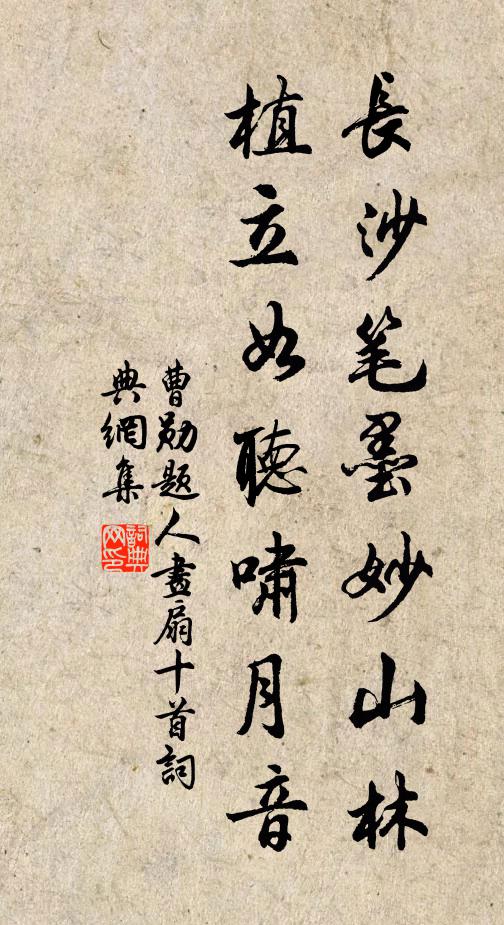 長沙笔墨妙山林
植立如聽啸月音
曹勛題人畫扇十首詞
典網集
詞典
网印